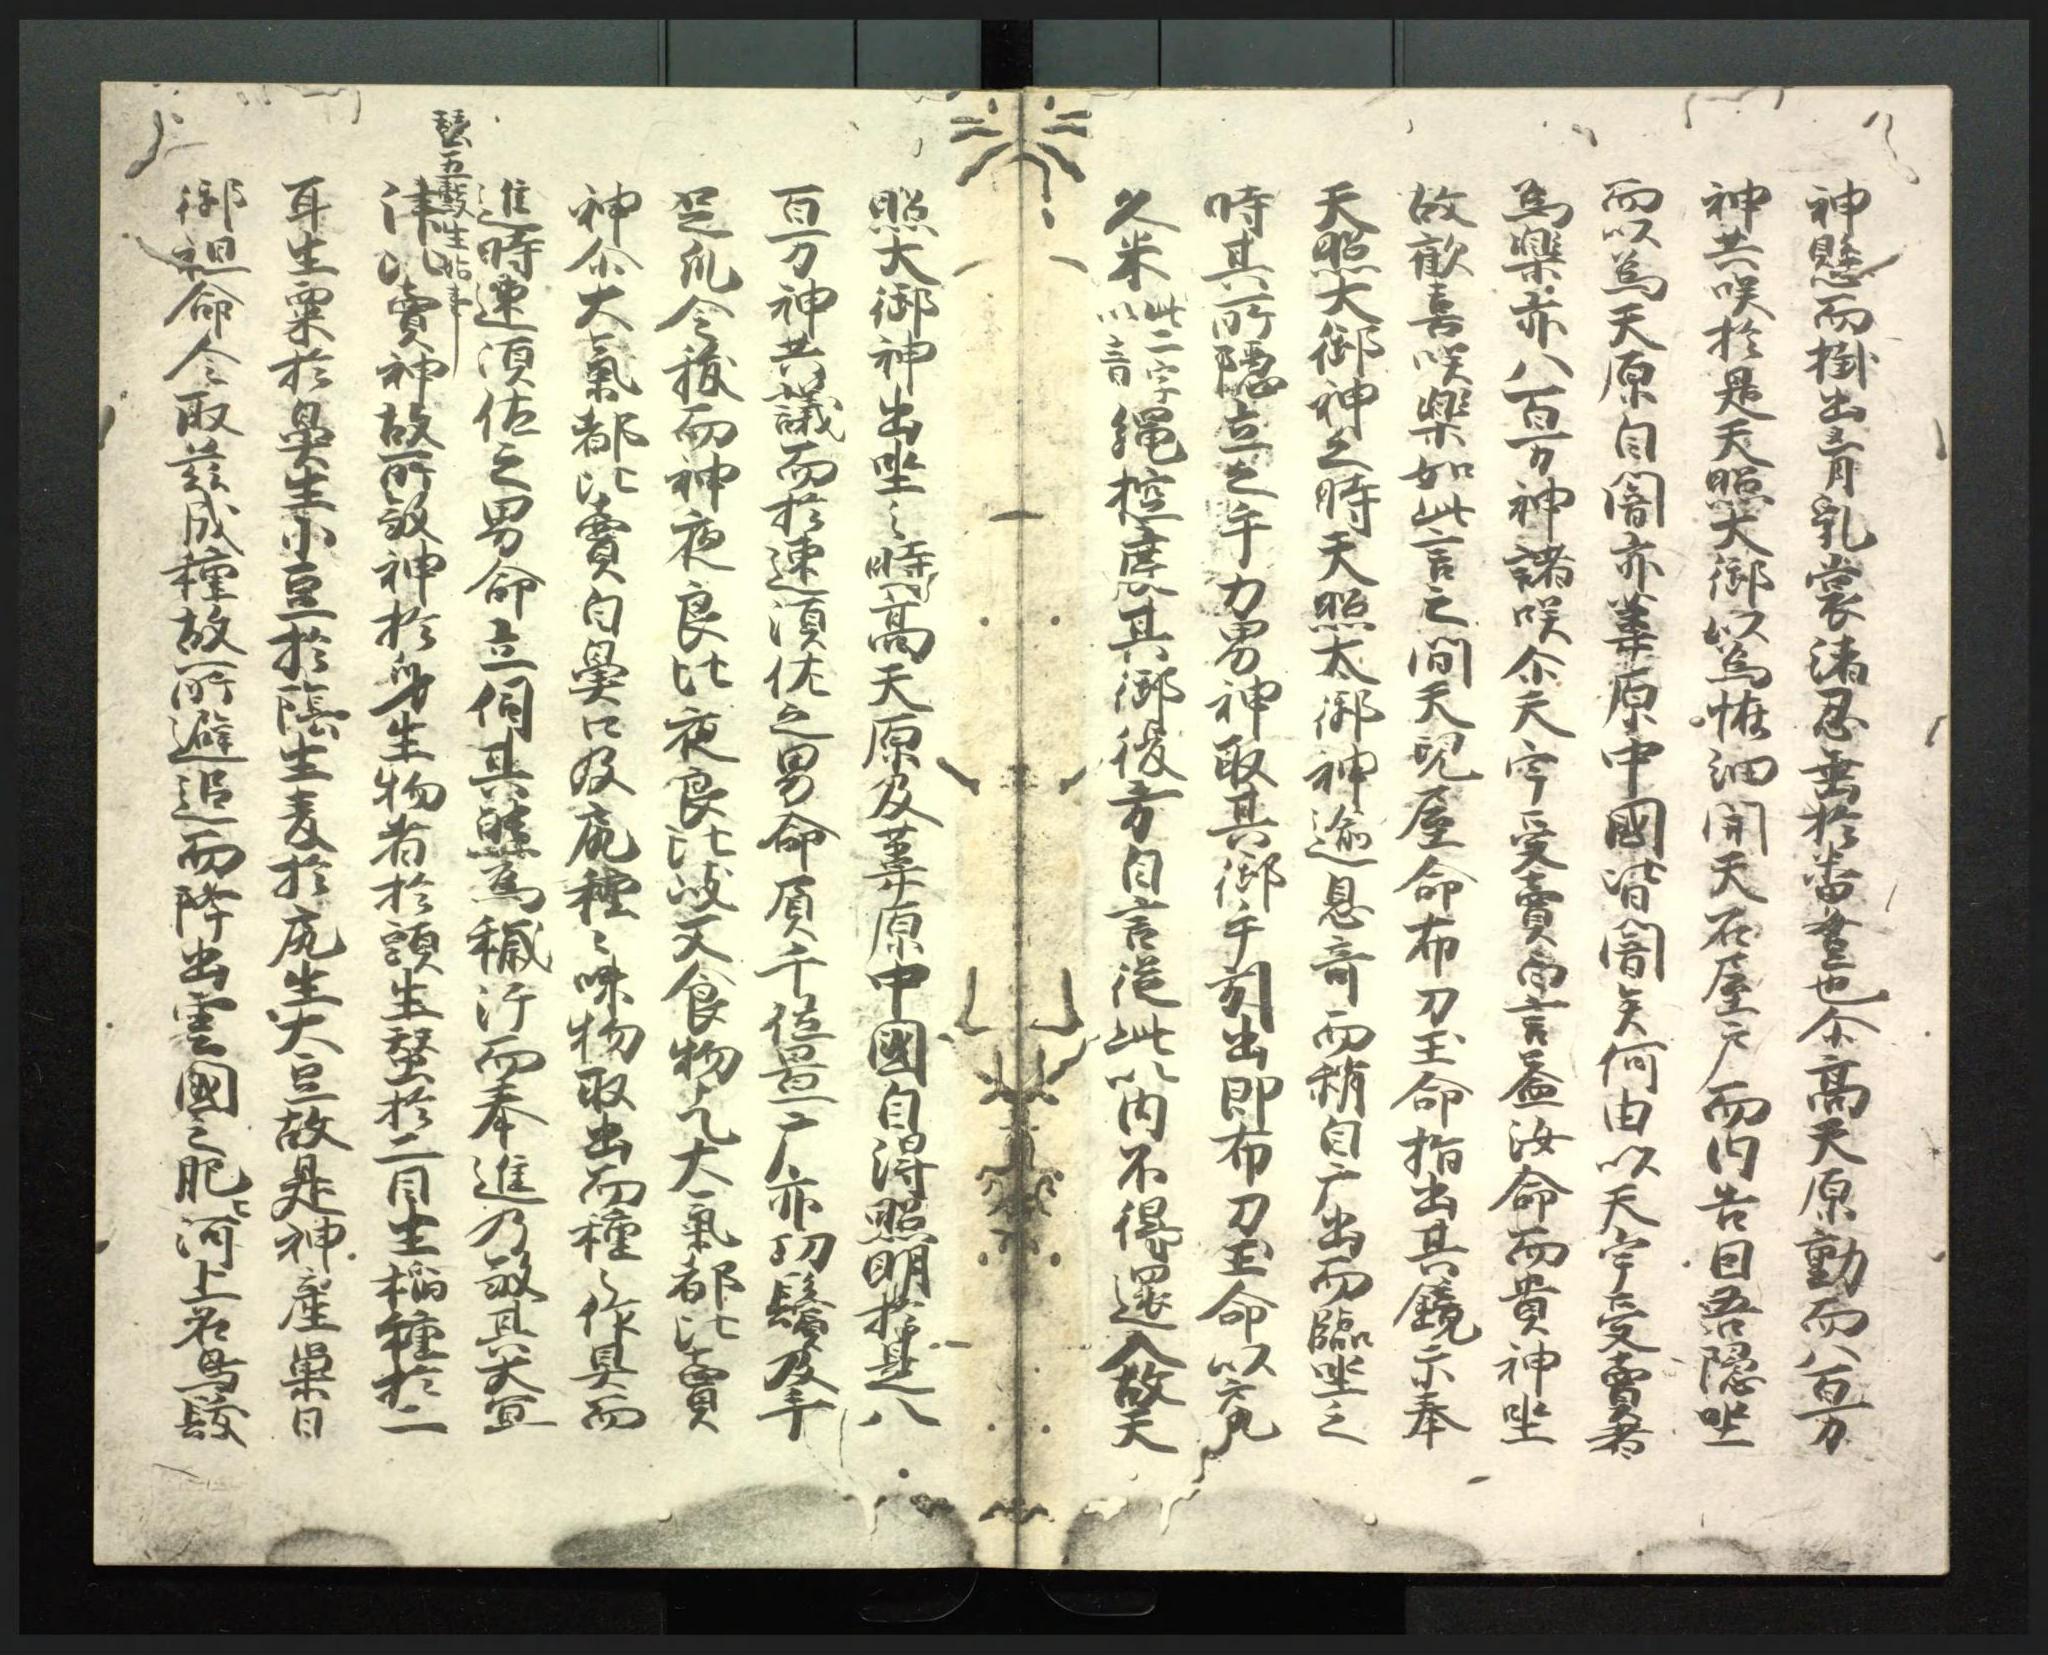 神懸而掛出胷乳裳渚忍垂於番登也尒高天原動而八百万
神共咲於是天照大御以為恠細開天石屋戸而内告曰吾隠坐
而以為天原自闇亦葦原中國皆闇矣何由以天宇受賣者
為樂亦八百万神諸咲尒天宇受賣白言益汝命而貴神坐
故歓喜咲樂如此言之間天兒屋命布刀玉命指出其鏡示奉
天照大御神之時天照太御神逾思奇而稍自戸出而臨坐之
時其所隠立之手力男神取其御手引出即布刀玉命以尻
久米此二字以音繩控度其御後方白言從此以内不得還入故天
照大御神出坐之時高天原及葦原中國自得照明於是八
百万神共議而於速湏佐之男命負千位置戸亦切鬚及手
足爪令祓而神夜良比夜良比岐又食物乞大氣都比賣
神尒大氣都比賣自鼻口及尻種〻味物取出而種〻作具而
進時速湏佐之男命立伺其態為穢汙而奉進乃殺其大冝
蚕五穀生始事
津比賣神故所殺神於身生物者於頭生蚕於二目生稲種於二
耳生粟於鼻生小豆於陰生麦於尻生大豆故是神産巣日
御祖命令取茲成種故所避追而降出雲國之肥上河上名鳥髪